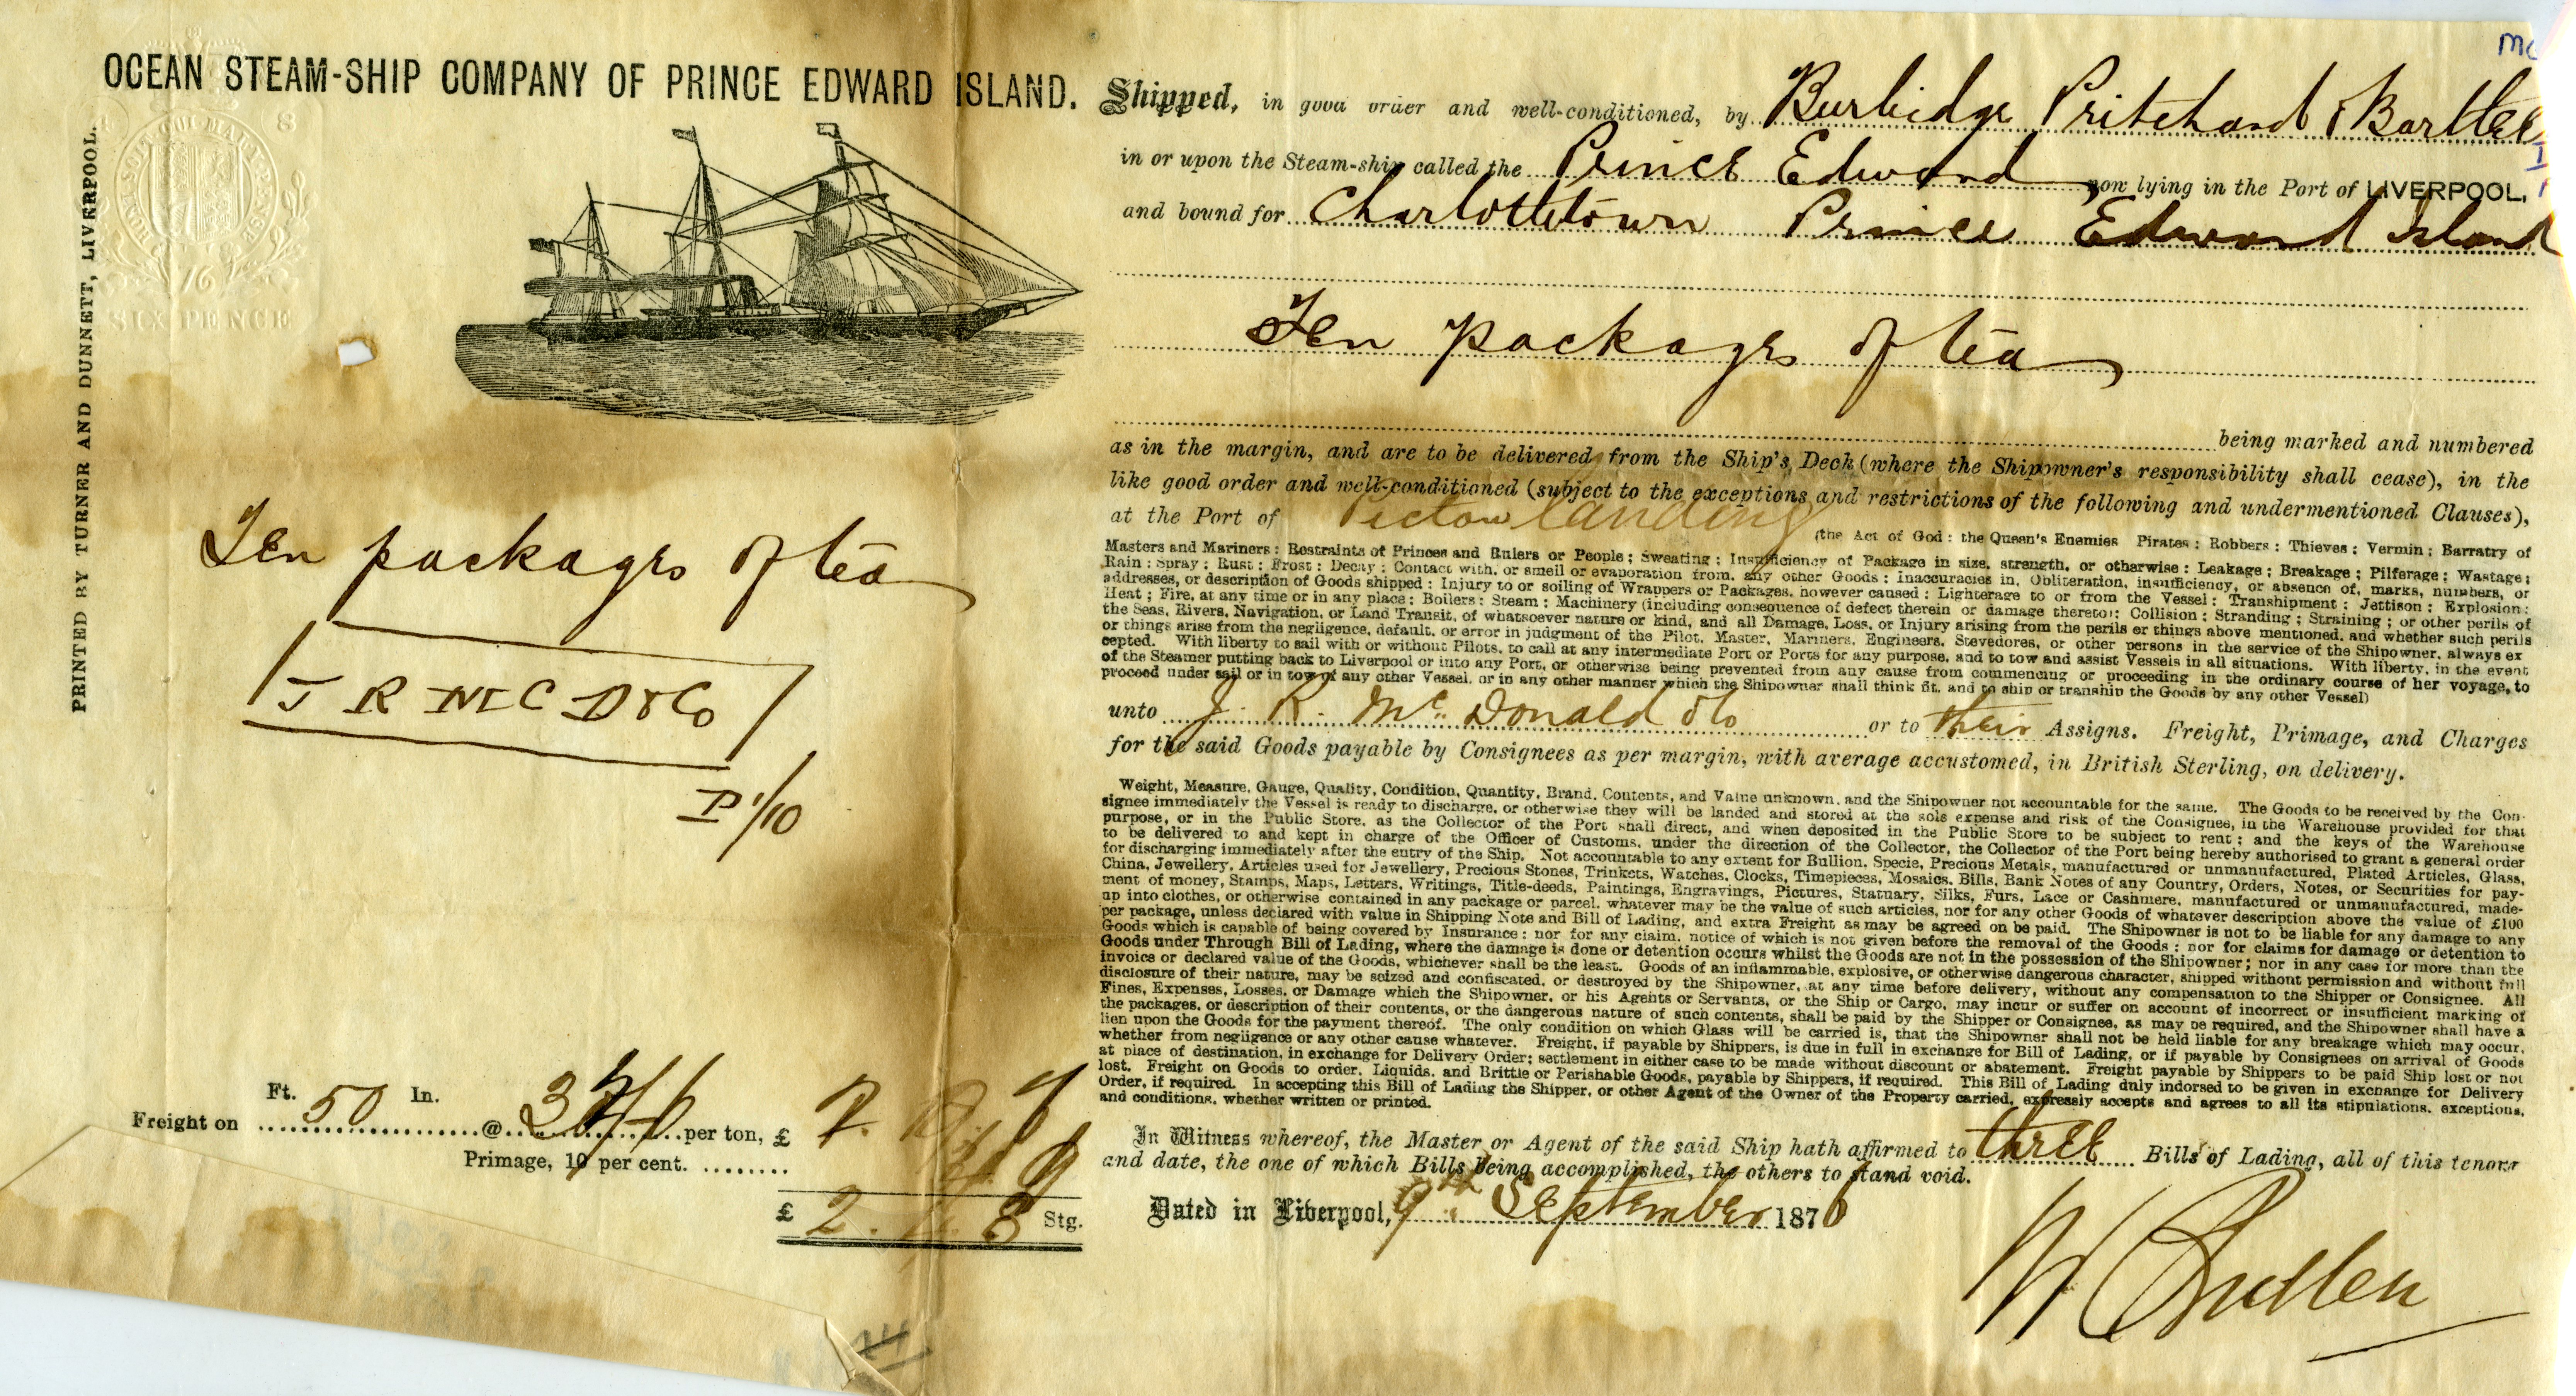 OCEAN STEAM-SHIP COMPANY OF PRINCE EDWARD ISLAND.
PRINTED BY TURNER AND DUNNETT, LIVERPOOL.
HONI SOIT QUI MAL Y PENSE
8
76
SIX PENCE
Ten packages of tea
J R McD & Co
P 1/10
Ft. 50 In.
Freight on @ per ton, £ 2.
Primage, 10 per cent.
£ 2. 8 Stg.
Mc
Shipped, in good order and well-conditioned, by Burbidge Pritchard & Bartlee
in or upon the Steam-ship called the Prince Edward now lying in the Port of LIVERPOOL,
and bound for Charlottetown Prince Edward Island
Ten packages of tea
being marked and numbered
as in the margin, and are to be delivered from the Ship's Deck (where the Shipowner's responsibility shall cease), in the
like good order and well-conditioned (subject to the exceptions and restrictions of the following and undermentioned Clauses),
at the Port of Pictou Landing (the Act of God: the Queen's Enemies Pirates: Robbers: Thieves: Vermin: Barratry of
Masters and Mariners: Restraints of Princes and Rulers or People; Sweating; Insufficiency of Package in size, strength, or otherwise: Leakage; Breakage; Pilferage; Wastage;
Rain: Spray: Rust: Frost: Decay: Contact with, or smell or evaporation from, any other Goods: inaccuracies in, Obliteration, insufficiency, or absence of, marks, numbers, or
addresses, or description of Goods shipped: Injury to or soiling of Wrappers or Packages, however caused: Lighterage to or from the Vessel: Transhipment: Jettison: Explosion:
Heat; Fire, at any time or in any place: Boilers: Steam: Machinery (including consequence of defect therein or damage thereto): Collision: Stranding: Straining; or other perils of
the Seas, Rivers, Navigation, or Land Transit, of whatsoever nature or kind, and all Damage, Loss, or Injury arising from the perils or things above mentioned, and whether such perils
or things arise from the negligence, default, or error in judgment of the Pilot, Master, Mariners, Engineers, Stevedores, or other persons in the service of the Shipowner, always ex
cepted. With liberty to sail with or without Pilots, to call at any intermediate Port or Ports for any purpose, and to tow and assist Vessels in all situations. With liberty, in the event
of the Steamer putting back to Liverpool or into any Port, or otherwise being prevented from any cause from commencing or proceeding in the ordinary course of her voyage, to
proceed under sail or in tow of any other Vessel, or in any other manner which the Shipowner shall think fit, and to ship or tranship the Goods by any other Vessel)
unto J. R. McDonald & Co or to their Assigns. Freight, Primage, and Charges
for the said Goods payable by Consignees as per margin, with average accustomed, in British Sterling, on delivery.
Weight, Measure, Gauge, Quality, Condition, Quantity, Brand, Contents, and Value unknown, and the Shipowner not accountable for the same. The Goods to be received by the Con-
signee immediately the Vessel is ready to discharge, or otherwise they will be landed and stored at the sole expense and risk of the Consignee, in the Warehouse provided for that
purpose, or in the Public Store, as the Collector of the Port shall direct, and when deposited in the Public Store to be subject to rent; and the keys of the Warehouse
to be delivered to and kept in charge of the Officer of Customs, under the direction of the Collector, the Collector of the Port being hereby authorised to grant a general order
for discharging immediately after the entry of the Ship. Not accountable to any extent for Bullion, Specie, Precious Metals, manufactured or unmanufactured, Plated Articles, Glass,
China, Jewellery, Articles used for Jewellery, Precious Stones, Trinkets, Watches, Clocks, Timepieces, Mosaics, Bills, Bank Notes of any Country, Orders, Notes, or Securities for pay-
ment of money, Stamps, Maps, Letters, Writings, Title-deeds, Paintings, Engravings, Pictures, Statuary, Silks, Furs, Lace or Cashmere, manufactured or unmanufactured, made-
up into clothes, or otherwise contained in any package or parcel, whatever may be the value of such articles, nor for any other Goods of whatever description above the value of £100
per package, unless declared with value in Shipping Note and Bill of Lading, and extra Freight as may be agreed on be paid. The Shipowner is not to be liable for any damage to any
Goods which is capable of being covered by Insurance: nor for any claim, notice of which is not given before the removal of the Goods: nor for claims for damage or detention to
Goods under Through Bill of Lading, where the damage is done or detention occurs whilst the Goods are not in the possession of the Shipowner; nor in any case for more than the
invoice or declared value of the Goods, whichever shall be the least. Goods of an inflammable, explosive, or otherwise dangerous character, shipped without permission and without full
disclosure of their nature, may be seized and confiscated, or destroyed by the Shipowner, at any time before delivery, without any compensation to the Shipper or Consignee. All
Fines, Expenses, Losses, or Damage which the Shipowner, or his Agents or Servants, or the Ship or Cargo, may incur or suffer on account of incorrect or insufficient marking of
the packages, or description of their contents, or the dangerous nature of such contents, shall be paid by the Shipper or Consignee, as may be required, and the Shipowner shall have a
lien upon the Goods for the payment thereof. The only condition on which Glass will be carried is, that the Shipowner shall not be held liable for any breakage which may occur,
whether from negligence or any other cause whatever. Freight, if payable by Shippers, is due in full in exchange for Bill of Lading, or if payable by Consignees on arrival of Goods
at place of destination, in exchange for Delivery Order; settlement in either case to be made without discount or abatement. Freight payable by Shippers to be paid Ship lost or not
lost. Freight on Goods to order, Liquids, and Brittle or Perishable Goods, payable by Shippers, if required. This Bill of Lading duly indorsed to be given in exchange for Delivery
Order, if required. In accepting this Bill of Lading the Shipper, or other Agent of the Owner of the Property carried, expressly accepts and agrees to all its stipulations, exceptions,
and conditions, whether written or printed.
In Witness whereof, the Master or Agent of the said Ship hath affirmed to three Bills of Lading, all of this tenour
and date, the one of which Bills being accomplished, the others to stand void.
Dated in Liverpool, 9th September 1876